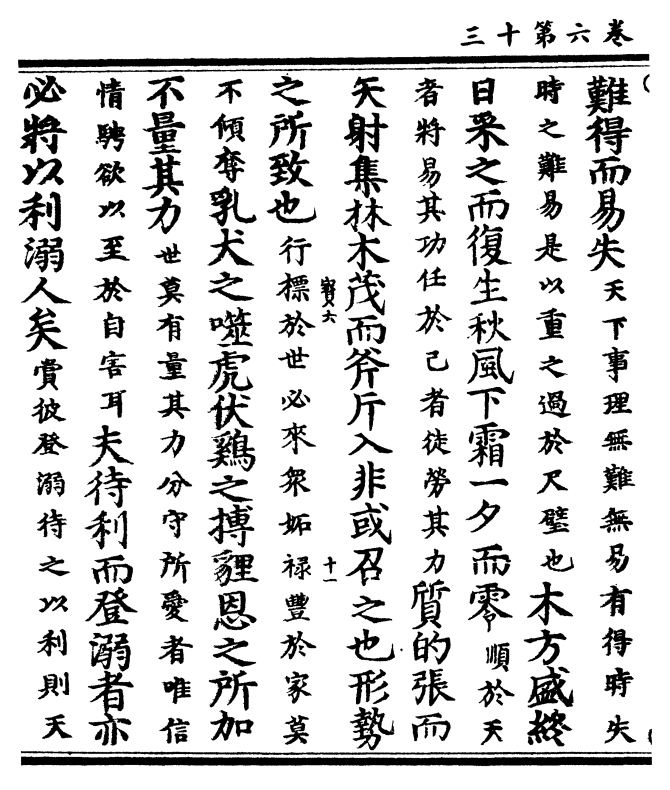 卷六第十三
難得而易失天下事理無難無易有得時失
時之難易是以重之過於尺璧也木方盛終
日采之而復生秋風下霜一夕而零順於天
者將易其功任於己者徒勞其力質的張而
矢射集林木茂而斧斤入非或召之也形勢
寶六
十一
之所致也行標於世必來衆妬祿豐於家莫
不傾奪乳犬之噬虎伏鷄之搏貍恩之所加
不量其力世莫有量其力分守所愛者唯信
情騁欲以至於自害耳夫待利而登溺者亦
必將以利溺人矣賞彼登溺待之以利則天